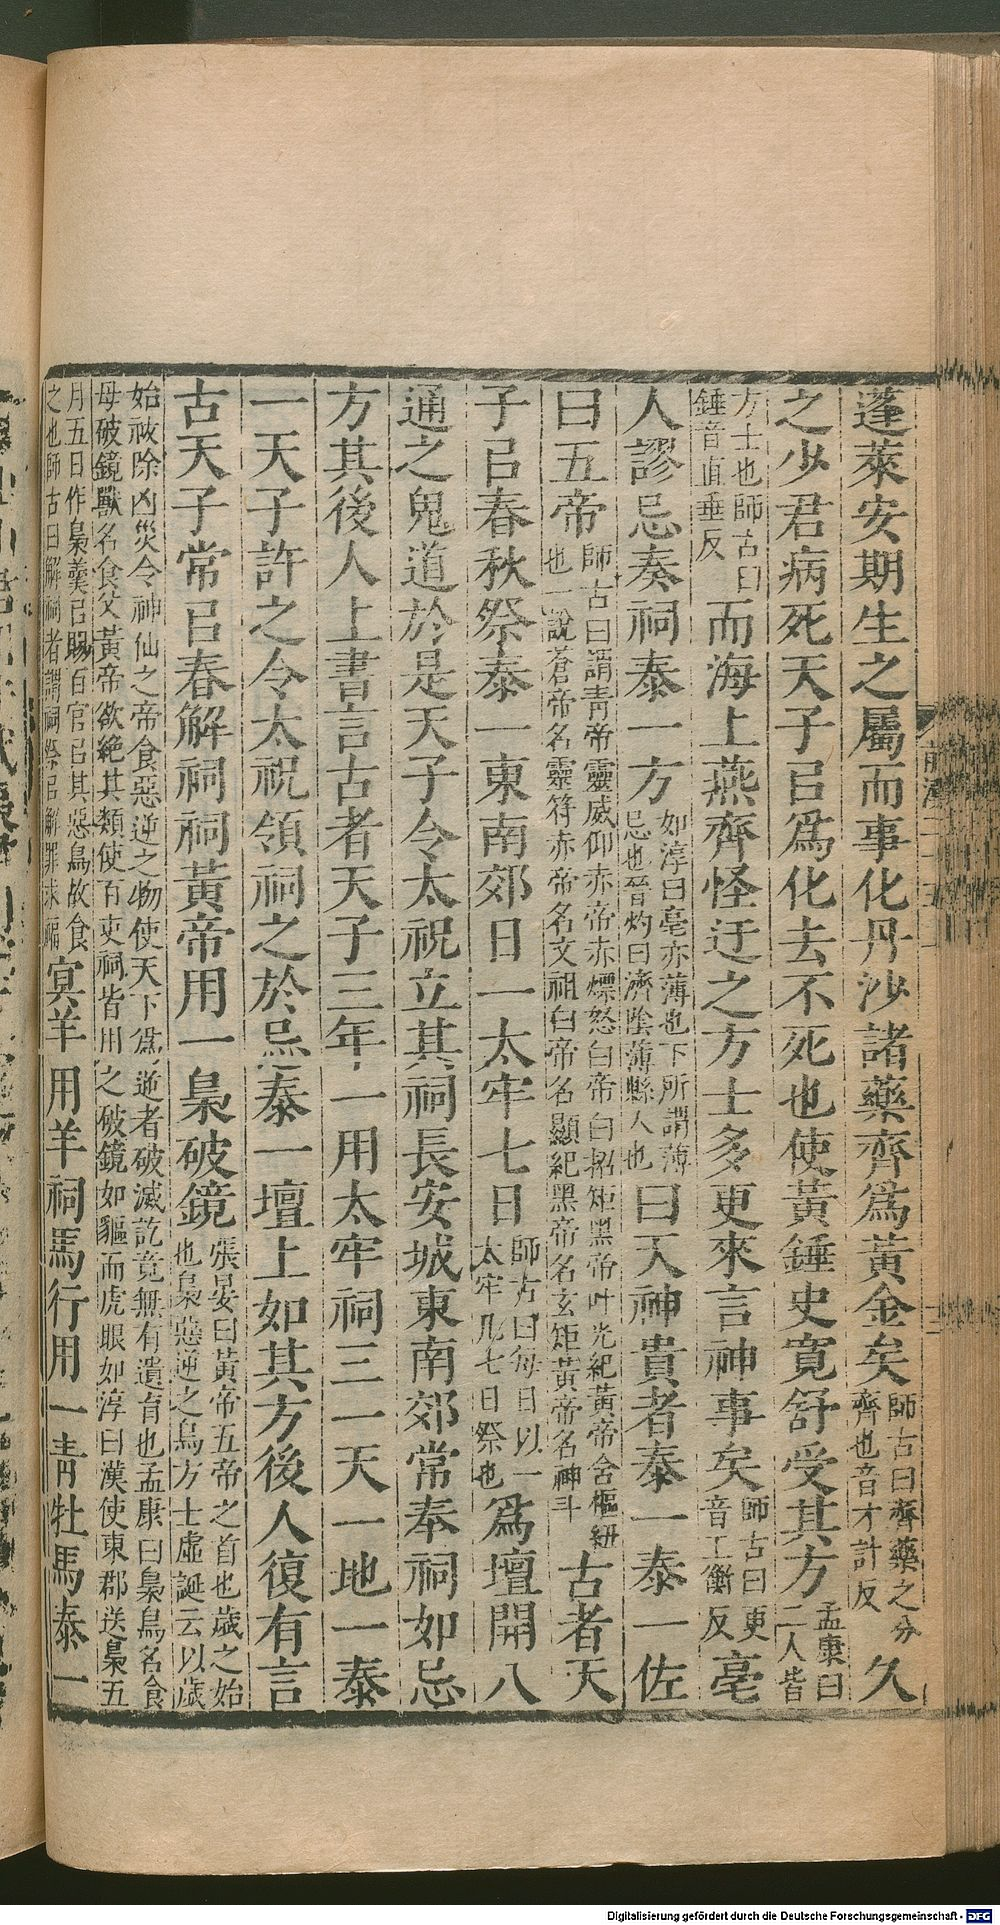 蓬萊安期生之屬而事化丹沙諸藥齊爲黃金矣師古曰齊藥之分齊也音才計反久
之少君病死天子㠯爲化去不死也使黃錘史寬舒受其方孟康曰二人皆
方士也師古曰錘音直垂反而海上燕齊怪迂之方士多更來言神事矣師古曰更音工衡反亳
人謬忌奏祠泰一方如淳曰亳亦薄也下所謂薄忌也晉灼曰濟陰薄縣人也曰天神貴者泰一泰一佐
曰五帝師古曰謂靑帝靈威仰赤帝赤熛怒白帝白招矩黑帝叶光紀黃帝含樞紐也一說蒼帝名靈符赤帝名文祖白帝名顯紀黑帝名玄矩黃帝名神斗古者天
子㠯春秋祭泰一東南郊日一太牢七日師古曰每日以一太牢凡七日祭也爲壇開八
通之鬼道於是天子令太祝立其祠長安城東南郊常奉祠如忌
方其後人上書言古者天子三年一用太牢祠三一天一地一泰
一天子許之令太祝領祠之於忌泰一壇上如其方後人復有言
古天子常㠯春解祠祠黃帝用一梟破鏡張晏曰黃帝五帝之首也歲之始也梟惡逆之鳥方士虛誕云以歲
始祓除凶災令神仙之帝食惡逆之物使天下爲逆者破滅訖竟無有遺育也孟康曰梟鳥名食母破鏡獸名食父黃帝欲絶其類使百吏祠皆用之破鏡如貙而虎眼如淳曰漢使東郡送梟五
月五日作梟羹㠯賜百官㠯其惡鳥故食之也師古曰解祠者謂祠祭㠯解罪求福冥羊用羊祠馬行用一靑牡馬泰一
Digitalisierung gefördert durch die Deutsche Forschungsgemeinschaft - DFG